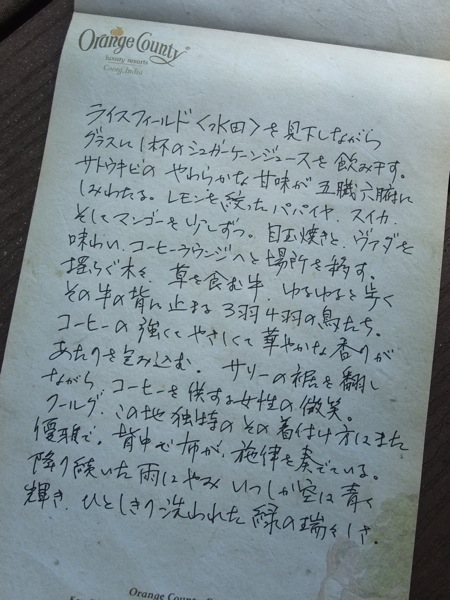 Orange County
luxury resorts
Coorg, India
ライスフィールド〈水田〉を見下しながら
グラスに1杯のシュガーケーンジュースを飲み干す。
サトウキビの やわらかな甘味が 五臓六腑に
しみわたる。レモンを絞った パパイヤ、スイカ、
そしてマンゴーを少しずつ。目玉焼きと、ヴァダを
味わい、コーヒーラウンジへと場所を移す。
揺らぐ木々、草を食む牛、ゆるゆると歩く
その牛の背に止まる 3羽4羽の鳥たち。
コーヒーの 強くてやさしくて 華やかな 香りが
あたりを包み込む。サリーの裾を翻し
ながら、コーヒーを供する女性の微笑。
クールグ、この地独特のその着付け方はまた
優雅で、背中で布が、旋律を奏でている。
降り続いた雨はやみ いつしか空は青く
輝き、ひとしきり洗われた 緑の瑞々しさ。
Orange County